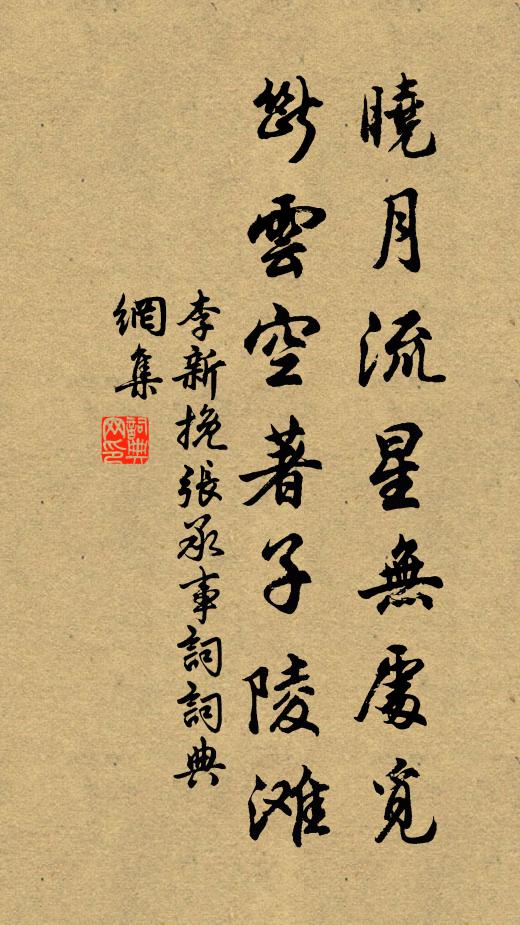 曉月流星無處覓
斷雲空著子陵滩
李新挽張承事詞詞典
網集
詞典
网印